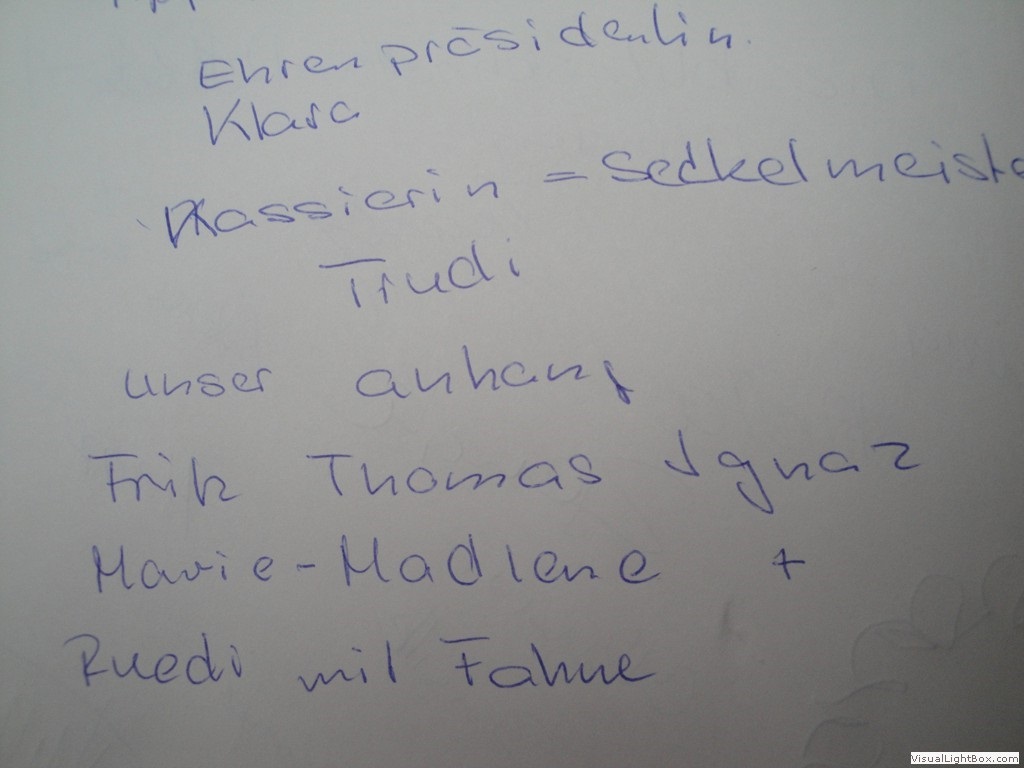 Ehrenpräsidentin.
Klara
Kassierin = Seckelmeiste
Trudi
unser anhang
Fritz Thomas Ignaz
Marie-Madlene +
Ruedi mit Fahne
VisualLightBox.com